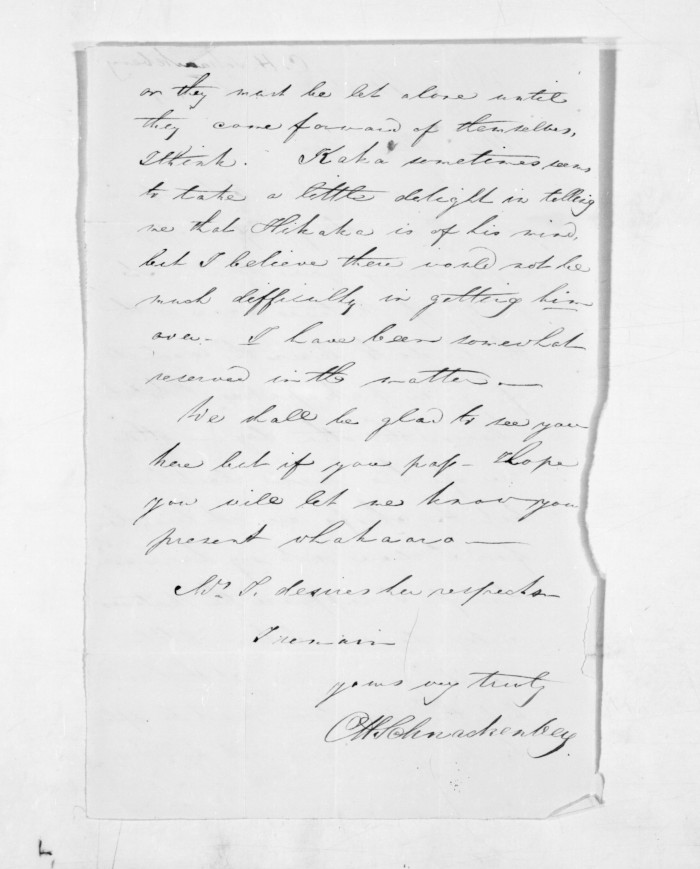 or they must be let alone until
they come forward of themselves,
I think. Kaka sometimes seems
to take a little delight in telling
me that Hikaka is of his mind,
but I believe there would not be
much difficulty in getting him
over - I have been somewhat
reserved in the matter -
We shall be glad to see you
here but if you pass - I hope
you will let me know you
present whakaaro -
Mrs S. desires her respects -
I remain
yours very truly
CHSchnackenberg